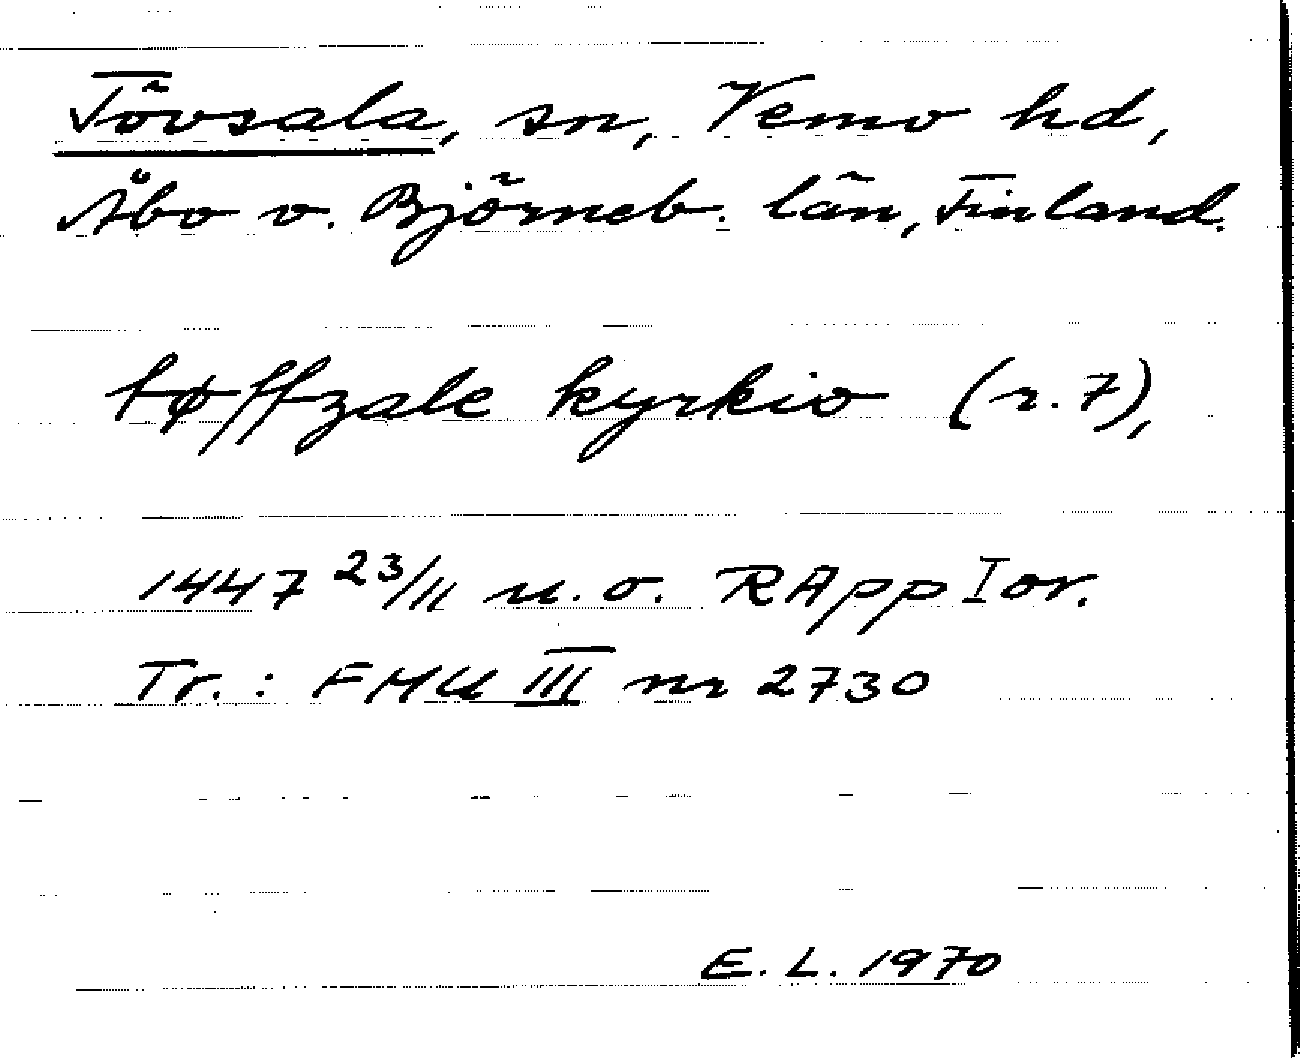 Tövsala, sn, Vemo hd,
Åbo o. Björneb. län, Finland.
tøffzale kyrkio (r. 7),
1447 23/11 u.o. RApp I or.
Tr.: FMU III nr 2730
E. L. 1970